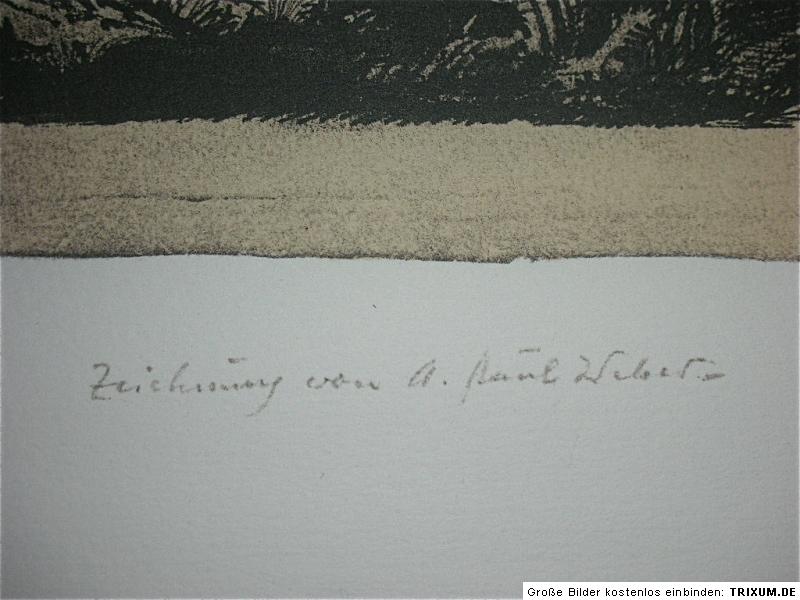 Zeichnung von A. Paul Weber
Große Bilder kostenlos einbinden: TRIXUM.DE